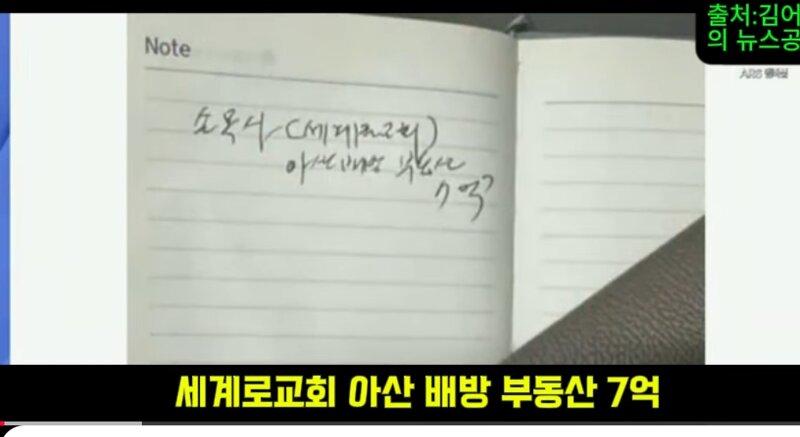 출처:김어
의 뉴스공
Note
(세계로교회)
아산 배방 부동산
7억?
세계로교회 아산 배방 부동산 7억